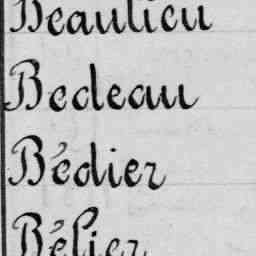 Beaulieu
Bedeau
Bédier
Bélier